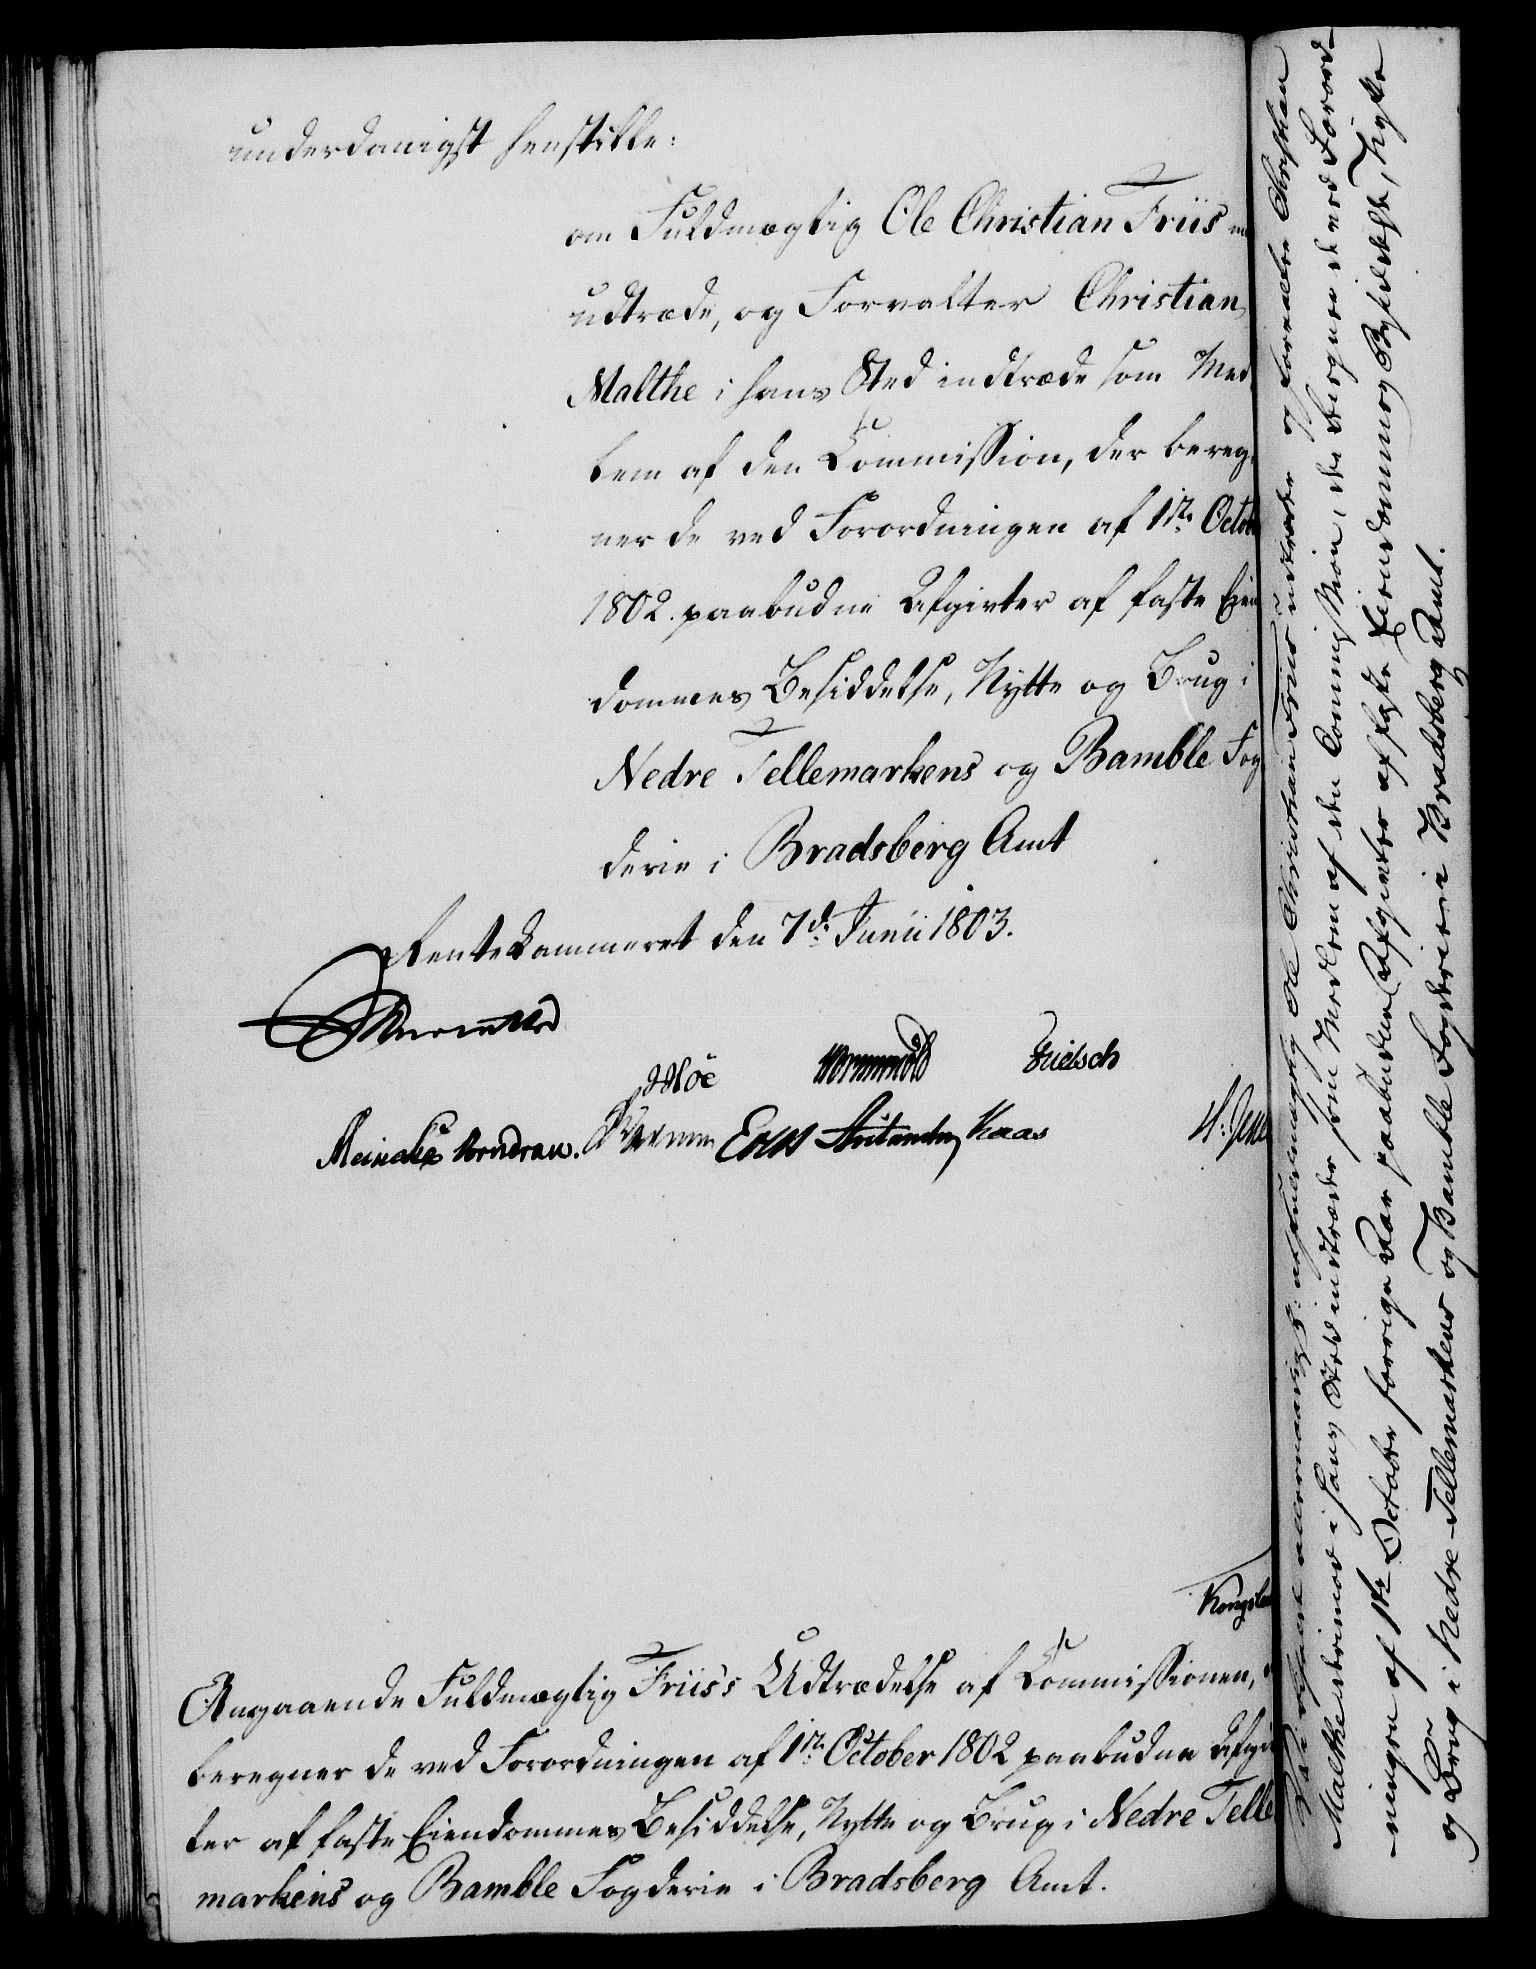 underdanigst henstille:
om Fuldmægtig Ole Christian Friis
udtræde, og Forvalter Christian
Malthe i hans Sted indtræde som Med
lem af den Commission, der bereg
ner de ved Forordningen af 1ste Octob
1802. paabudne Afgivter af faste Eien
dommes Besiddelse, Nytte og Brug i
Nedre Tellemarkens og Bamble Fog
derie i Bradsberg Amt
Rentekammeret den 7de Junii 1803.
Wormskiold
Meinche Vendrau. Kaas
Kongsl
Angaaende Fuldmægtig Friis's Udtrædelse af Commissionen,
beregner de ved Forordningen af 1ste October 1802 paabudne Afgiv
ter af faste Eiendommes Besiddelse, Nytte og Brug i Nedre Telle
markens og Bamble Fogderie i Bradsberg Amt.
Vi ville allernaadigst: at Fuldmægtig Ole Christian Friis udtræder og Forvalter Christian
Malthe derimod i hans Sted indtræder som Medlem af den Commission, der beregner de ved Forord-
ningen af 1ste October forrige Aar paabudne Afgivter af faste Eiendommes Besiddelse, Nytte
og Brug i Nedre-Tellemarkens og Bamble Fogderie i Bradsberg Amt.